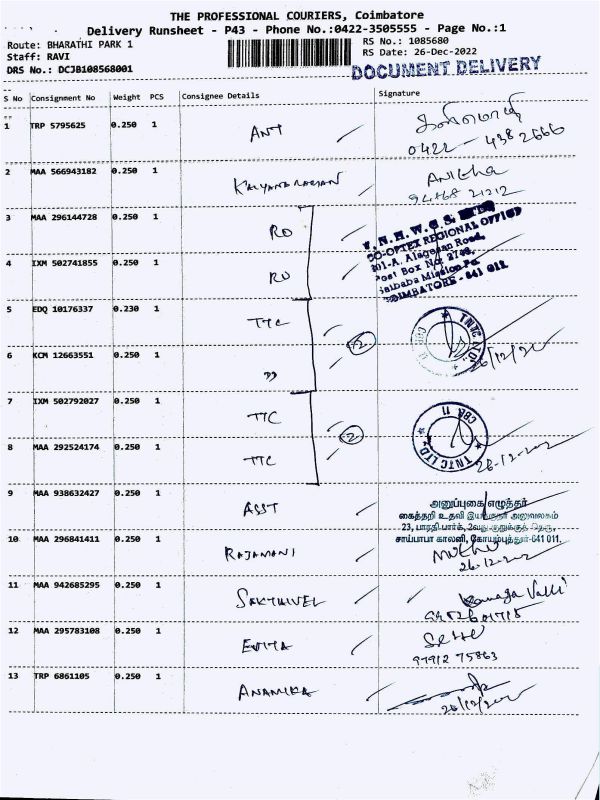 THE PROFESSIONAL COURIERS, Coimbatore
Delivery Runsheet - P43 - Phone No.:0422-3505555 - Page No.:1
Route: BHARATHI PARK 1
RS No.: 1085680
Staff: RAVI
RS Date: 26-Dec-2022
DRS No.: DCJB108568001
DOCUMENT DELIVERY
S No Consignment No Weight PCS Consignee Details Signature
1 TRP 5795625 0.250 1 ANT
0422 - 438 2666
2 MAA 566943182 0.250 1 KALYANARAMAN Anitha
3 MAA 296144728 0.250 1 RO
CO-OPTEX REGIONAL OFFICE
201-A, Alagesan Road,
Post Box No: 2749,
Saibaba Mission Po.
COIMBATORE - 641 011.
4 IXM 502741855 0.250 1 RO
5 EDQ 10176337 0.230 1 TTC
2
TNTC LTD.
26/12/22
6 KCM 12663551 0.250 1 "
7 IXM 502792027 0.250 1 TTC
2
CBE 11
TNTC LTD
8 MAA 292524174 0.250 1 TTC
26-12-2022
9 MAA 938632427 0.250 1 ASST
அனுப்புகை எழுத்தர்
கைத்தறி உதவி இயக்குநர் அலுவலகம்
23, பாரதி பார்க், 2வது குறுக்குத் தெரு,
சாய்பாபா காலனி, கோயம்புத்தூர்-641 011.
10 MAA 296841411 0.250 1 RAJAMANI Muthu
26.12.2022
11 MAA 942685295 0.250 1 SAKTHIVEL Kanaga Valli
12 MAA 295783108 0.250 1 EVITA
97912 75863
13 TRP 6861105 0.250 1 ANAMIKA
26/12/22